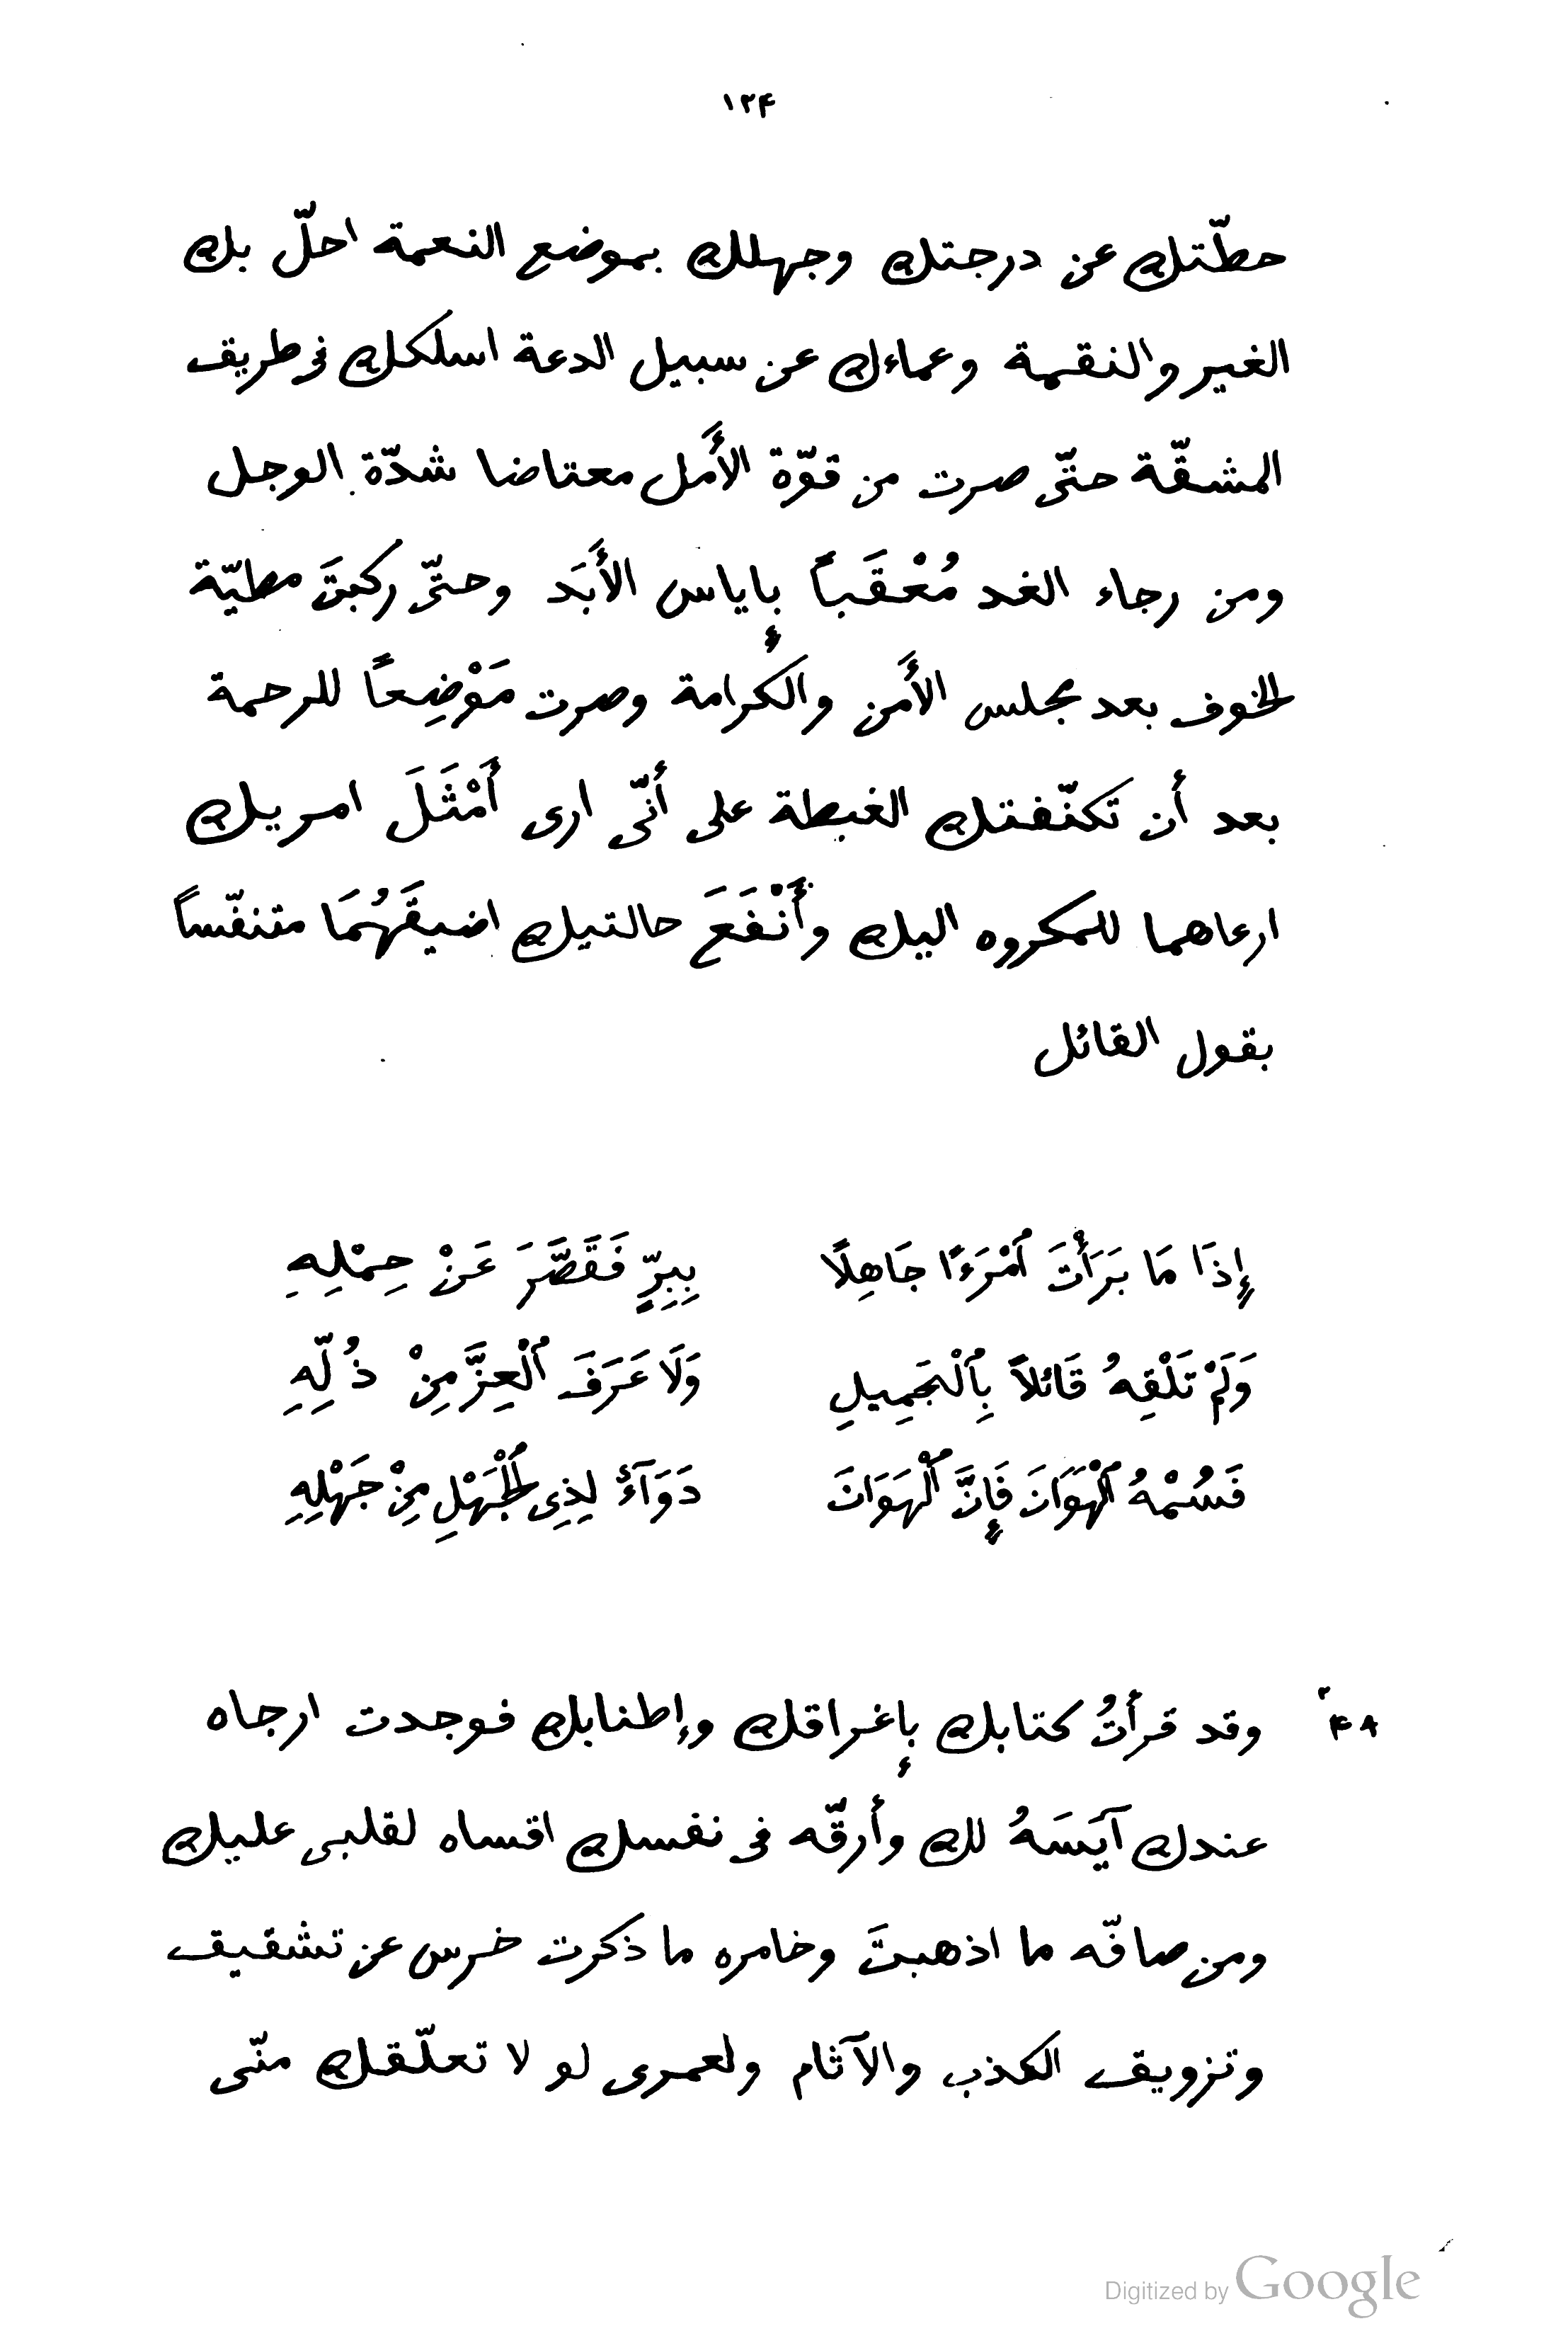 ١٢۴
حطّتك عن درجتك وجهلك بموضع النعمة احلّ بك
الغير والنقمة وعماءك عن سبيل الدعة اسلكك فى طريق
المشقّة حتّى صرت من قوّة الأَمل معتاضا شدّة الوجل
ومن رجاء الغد مُعْقَباً بإياس الأَبَد وحتّى ركبتَ مطيّة
الخوف بعد مجلس الأَمن والكرامة وصرت مَوْضِعاً للرحمة
بعد أن تكنّفتك الغبطة على أنّى ارى أَمْثَلَ امريك
ادعاهما للمكروه اليك وأَنْفَعَ حالتيك اضيقَهُمَا متنفّساً
بقول القائل
إِذَا مَا بَرَأْتَ ٱمْرَءًا جَاهِلًا بِبِرٍّ فَقَصَّرَ عَنْ حِمْلِهِ
وَلَمْ تَلْقِهُ قَائلاً بِٱلْجَمِيلِ وَلَا عَرَفَ ٱلْعِزَّ مِنْ ذُلِّهِ
فَسُمْهُ ٱلْهَوَانَ فَإِنَّ ٱلْهَوَانَ دَوَآءٌ لِذِى ٱلْجَهْلِ مِنْ جَهْلِهِ
۴٨ وقد قرأتُ كتابك بإغراقك وإطنابك فوجدت ارجاه
عندك آيَسَهُ لك وأرقّه فى نفسك اقساه لقلبى عليك
ومن صافّه ما اذهبتَ وخامره ما ذكرت خرس عن تشقيق
وتزويق الكذب والآثام ولعمرى لو لا تعلّقك منّى
Digitized by Google